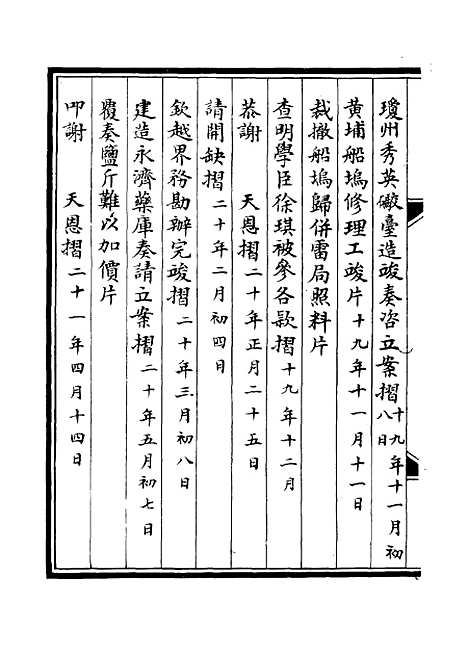 瓊州秀英礮臺造竣奏咨立案摺十九年十一月初八日
黃埔船塢修理工竣片十九年十一月十一日
裁撤船塢歸併雷局照料片
查明學臣徐琪被參各款摺十九年十二月
恭謝　天恩摺二十年正月二十五日
請開缺摺二十年二月初四日
欽越界務勘辦完竣摺二十年三月初八日
建造永濟藥庫奏請立案摺二十年五月初七日
覆奏鹽斤難以加價片
叩謝　天恩摺二十一年四月十四日